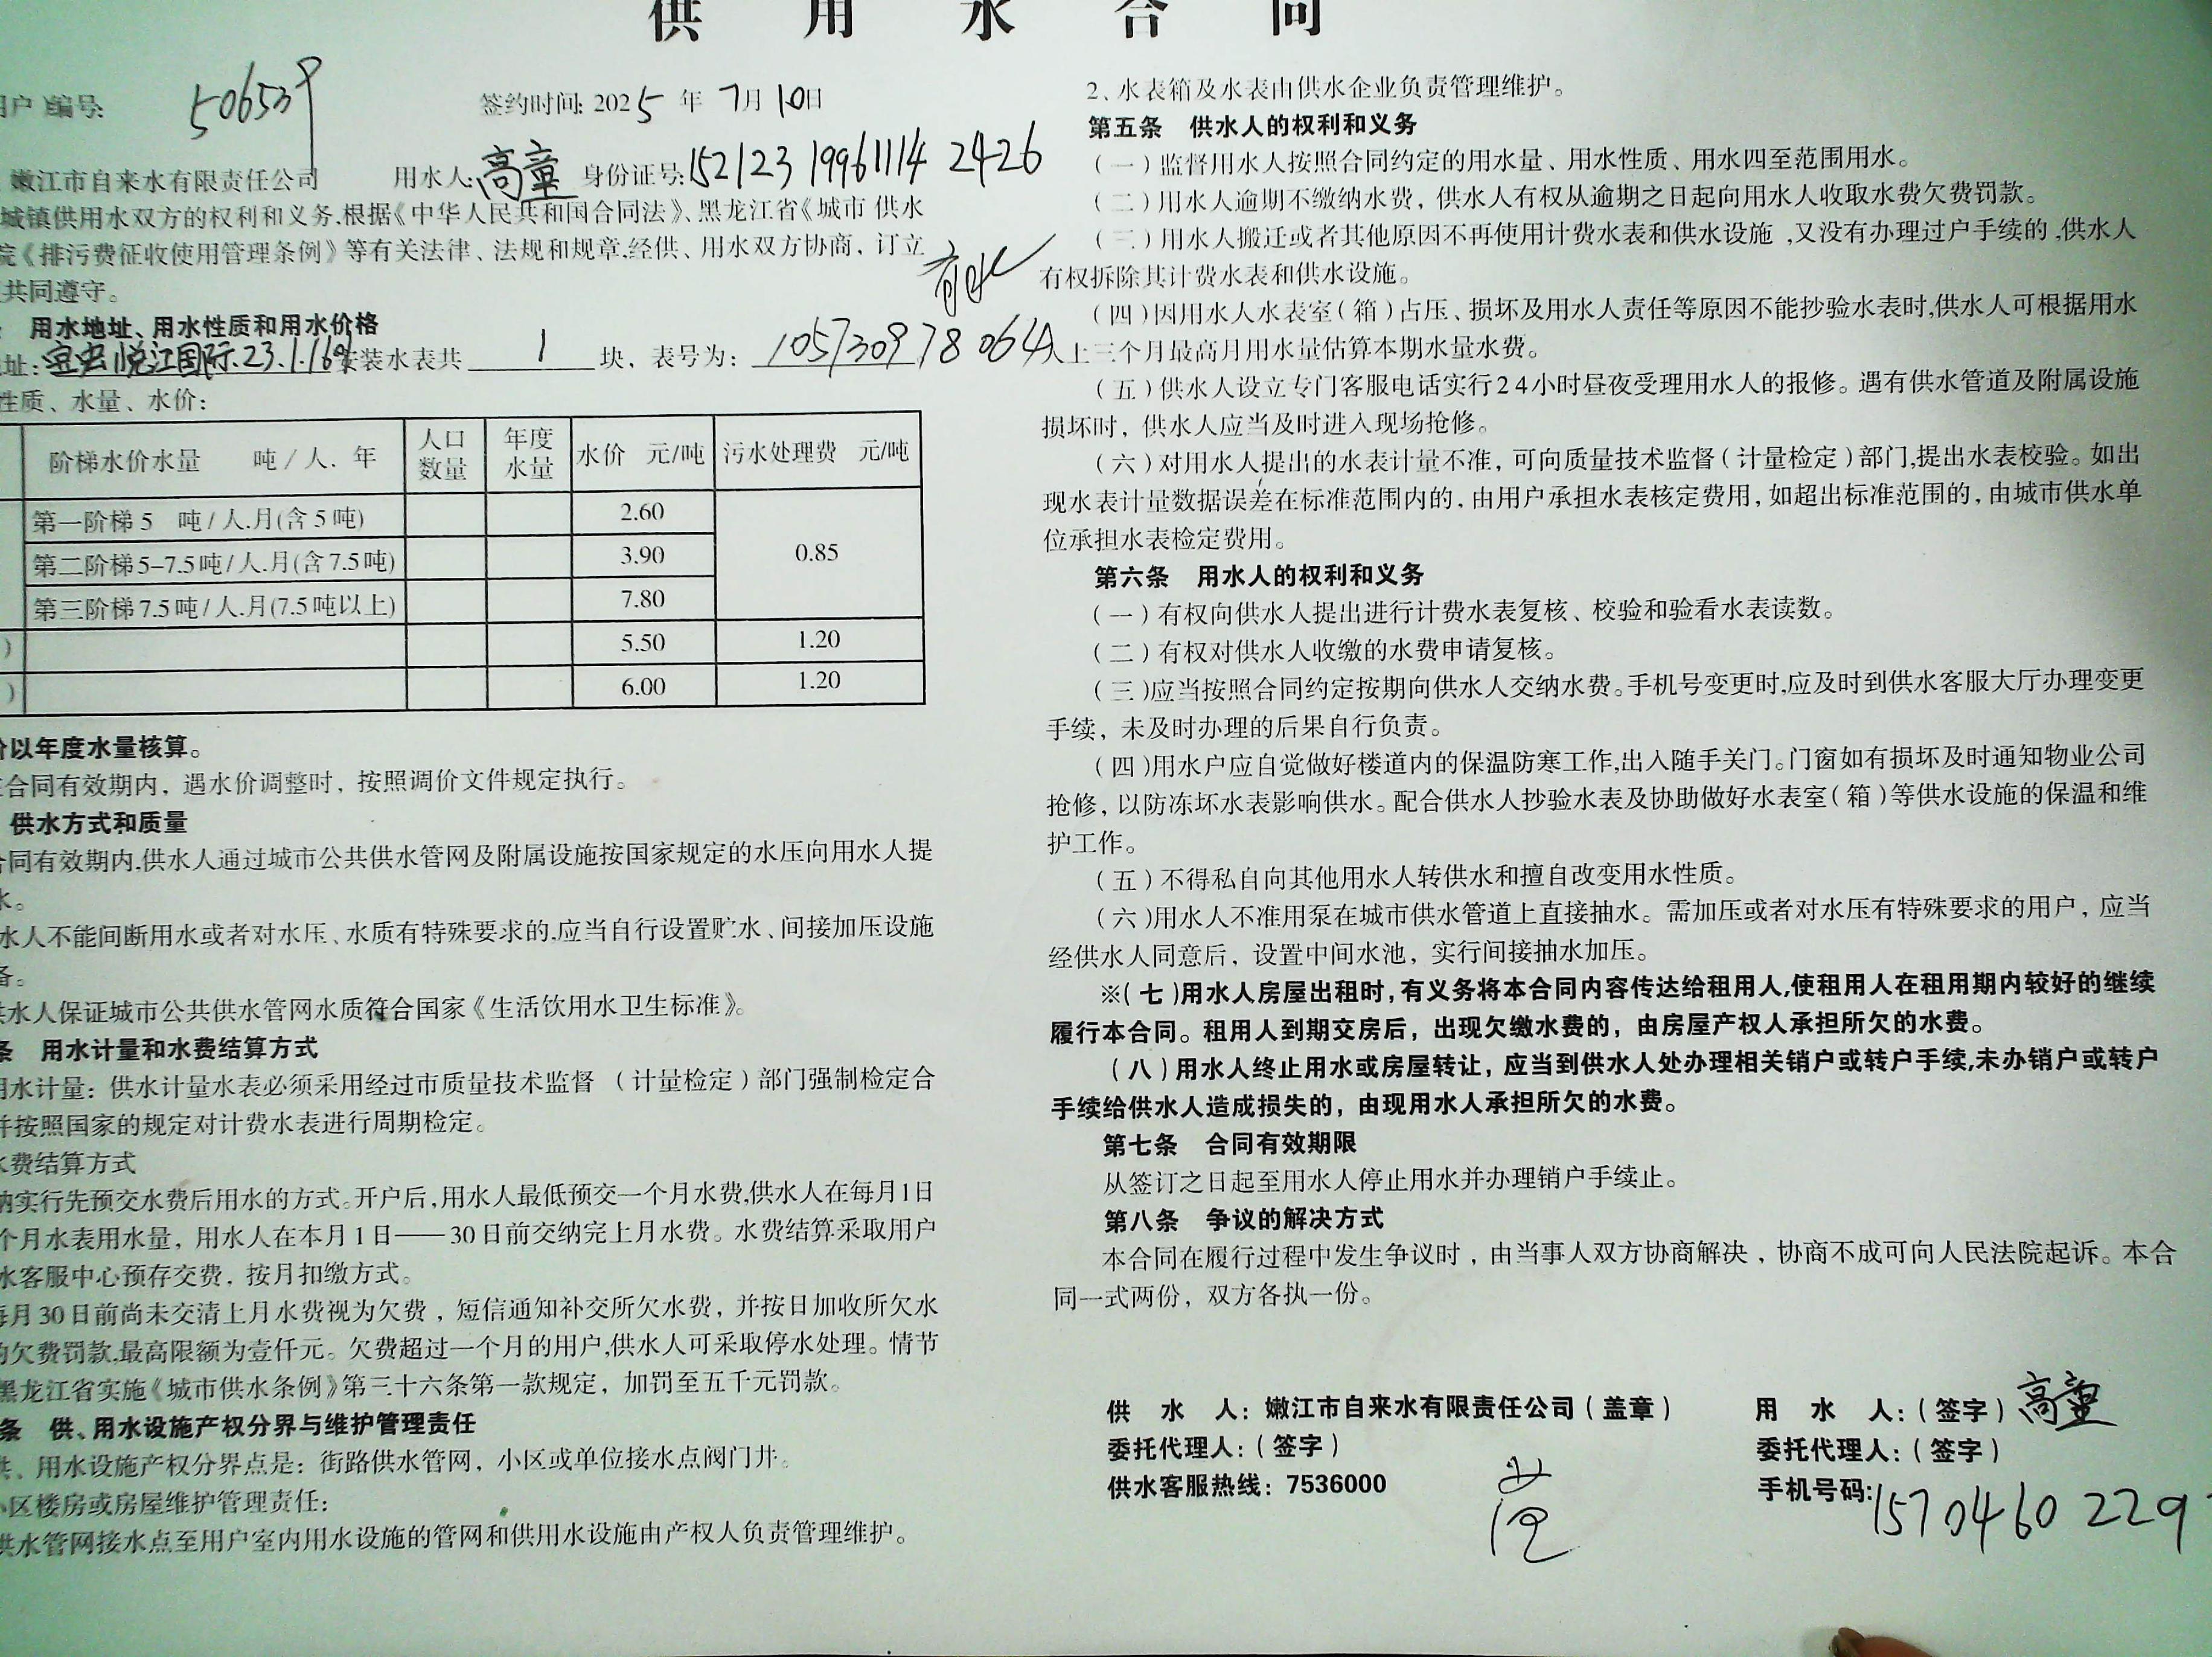 供 用 水 合 同
用户)编号: 506539 签约时间: 2025 年 7月 10日
嫩江市自来水有限责任公司 用水人: 高童 身份证号: 152123 19961114 2426
城镇供用水双方的权利和义务,根据《中华人民共和国合同法》、黑龙江省《城市 供水
院《排污费征收使用管理条例》等有关法律、法规和规章,经供、用水双方协商，订立
共同遵守。
用水地址、用水性质和用水价格
址: 悦江国际.23.1.1691 安装水表共 1 块，表号为: 105730978064
性质、水量、水价:
阶梯水价水量 吨/人.年 人口数量 年度水量 水价 元/吨 污水处理费 元/吨
第一阶梯 5 吨/人.月(含 5 吨) 2.60 0.85
第二阶梯 5-7.5吨/人.月(含 7.5吨) 3.90
第三阶梯 7.5吨/人.月(7.5吨以上) 7.80
) 5.50 1.20
) 6.00 1.20
价以年度水量核算。
在合同有效期内，遇水价调整时，按照调价文件规定执行。
供水方式和质量
合同有效期内,供水人通过城市公共供水管网及附属设施按国家规定的水压向用水人提
水。
水人不能间断用水或者对水压、水质有特殊要求的,应当自行设置贮水、间接加压设施
备。
供水人保证城市公共供水管网水质符合国家《生活饮用水卫生标准》。
条 用水计量和水费结算方式
用水计量: 供水计量水表必须采用经过市质量技术监督 （计量检定）部门强制检定合
并按照国家的规定对计费水表进行周期检定。
水费结算方式
纳实行先预交水费后用水的方式。开户后,用水人最低预交一个月水费,供水人在每月1日
个月水表用水量，用水人在本月 1 日—— 30 日前交纳完上月水费。水费结算采取用户
水客服中心预存交费，按月扣缴方式。
每月 30 日前尚未交清上月水费视为欠费，短信通知补交所欠水费，并按日加收所欠水
的欠费罚款,最高限额为壹仟元。欠费超过一个月的用户,供水人可采取停水处理。情节
黑龙江省实施《城市供水条例》第三十六条第一款规定，加罚至五千元罚款。
条 供、用水设施产权分界与维护管理责任
供、用水设施产权分界点是: 街路供水管网，小区或单位接水点阀门井。
小区楼房或房屋维护管理责任:
供水管网接水点至用户室内用水设施的管网和供用水设施由产权人负责管理维护。
2、水表箱及水表由供水企业负责管理维护。
第五条 供水人的权利和义务
（一）监督用水人按照合同约定的用水量、用水性质、用水四至范围用水。
（二）用水人逾期不缴纳水费，供水人有权从逾期之日起向用水人收取水费欠费罚款。
（三）用水人搬迁或者其他原因不再使用计费水表和供水设施 ,又没有办理过户手续的 ,供水人
有权拆除其计费水表和供水设施。
（四）因用水人水表室（箱）占压、损坏及用水人责任等原因不能抄验水表时,供水人可根据用水
人上三个月最高月用水量估算本期水量水费。
（五）供水人设立专门客服电话实行24小时昼夜受理用水人的报修。遇有供水管道及附属设施
损坏时，供水人应当及时进入现场抢修。
（六）对用水人提出的水表计量不准，可向质量技术监督（计量检定）部门,提出水表校验。如出
现水表计量数据误差在标准范围内的，由用户承担水表核定费用，如超出标准范围的，由城市供水单
位承担水表检定费用。
第六条 用水人的权利和义务
（一）有权向供水人提出进行计费水表复核、校验和验看水表读数。
（二）有权对供水人收缴的水费申请复核。
（三)应当按照合同约定按期向供水人交纳水费。手机号变更时,应及时到供水客服大厅办理变更
手续，未及时办理的后果自行负责。
（四)用水户应自觉做好楼道内的保温防寒工作,出入随手关门。门窗如有损坏及时通知物业公司
抢修，以防冻坏水表影响供水。配合供水人抄验水表及协助做好水表室（箱）等供水设施的保温和维
护工作。
（五)不得私自向其他用水人转供水和擅自改变用水性质。
（六)用水人不准用泵在城市供水管道上直接抽水。需加压或者对水压有特殊要求的用户，应当
经供水人同意后，设置中间水池，实行间接抽水加压。
※（七)用水人房屋出租时,有义务将本合同内容传达给租用人,使租用人在租用期内较好的继续
履行本合同。租用人到期交房后，出现欠缴水费的，由房屋产权人承担所欠的水费。
（八)用水人终止用水或房屋转让，应当到供水人处办理相关销户或转户手续,未办销户或转户
手续给供水人造成损失的，由现用水人承担所欠的水费。
第七条 合同有效期限
从签订之日起至用水人停止用水并办理销户手续止。
第八条 争议的解决方式
本合同在履行过程中发生争议时，由当事人双方协商解决，协商不成可向人民法院起诉。本合
同一式两份，双方各执一份。
供 水 人: 嫩江市自来水有限责任公司（盖章） 用 水 人:（签字）高童
委托代理人:（签字） 委托代理人:（签字）
供水客服热线: 7536000 手机号码: 1570460229